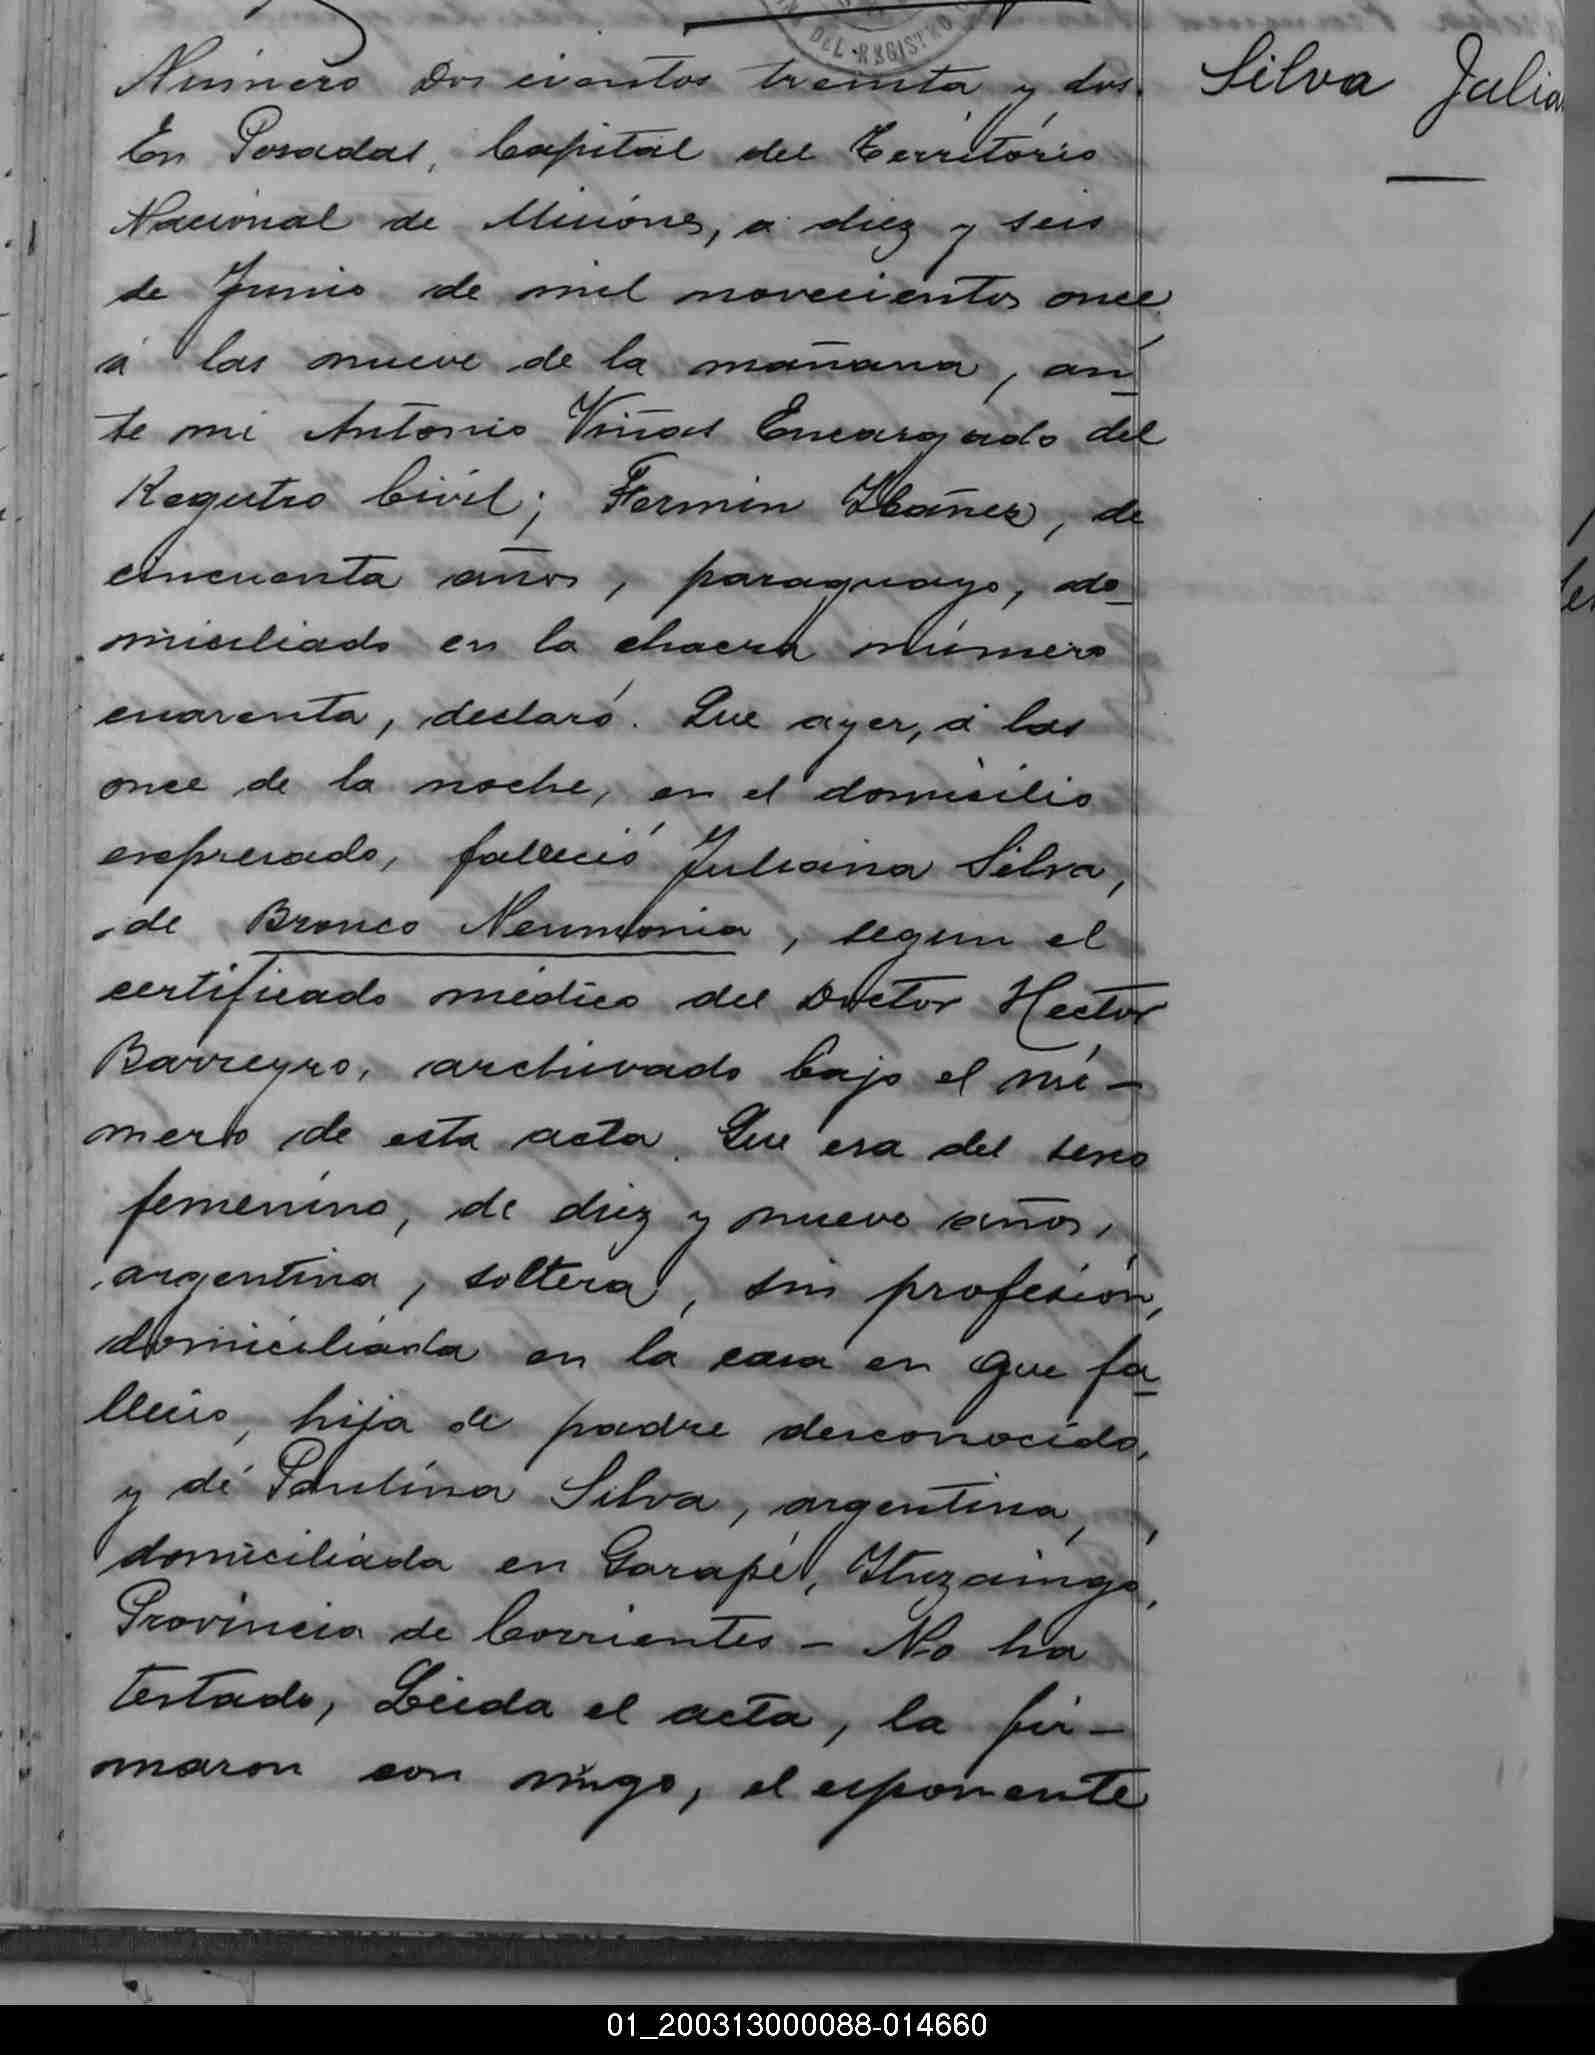 DEL REGISTRO
Número Dos cientos treinta y dos.
Silva Julia
En Posadas, Capital del Territorio
Nacional de Misiones, á diez y seis
de Junio de mil novecientos once
á las nueve de la mañana, an-
te mi Antonio Viñas Encargado del
Registro Civil; Fermin Ibañez, de
cincuenta años, paraguayo, do-
miciliado en la chacra número
cuarenta, declaró. Que ayer, á las
once de la noche, en el domicilio
expresado, falleció Juliana Silva,
de Bronco Neumonia, segun el
certificado médico del Doctor Hector
Barreyro, archivado bajo el nú-
mero de esta acta. Que era del sexo
femenino, de diez y nueve años,
argentina, soltera, sin profesión,
domiciliada en la casa en que fa-
lleció, hija de padre desconocido,
y de Paulina Silva, argentina,
domiciliada en Garapé, Ituzaingo,
Provincia de Corrientes - No ha
testado, Leida el acta, la fir-
maron con migo, el esponente
01_200313000088-014660